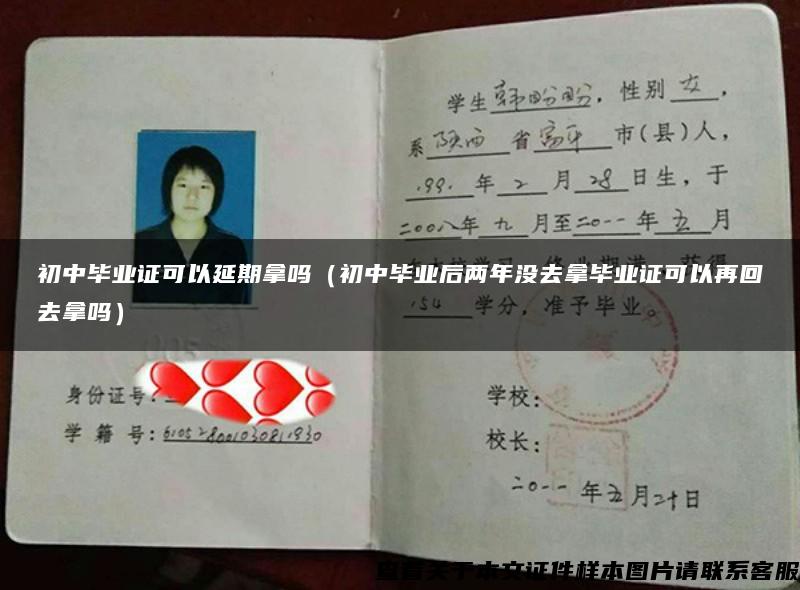 学生韩盼盼，性别女，
系陕西省富平市(县)人，
1991年2月28日生，于
二00八年九月至二0一一年五月
初中毕业证可以延期拿吗（初中毕业后两年没去拿毕业证可以再回
去拿吗）
154学分，准予毕业。
身份证号：
学籍号：
学校：
校长：
二0一一年五月二十日
查看关于本文证件样本图片请联系客服